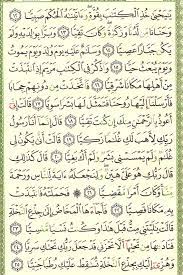 يَٰيَحْيَىٰ خُذِ ٱلْكِتَٰبَ بِقُوَّةٍ ۖ وَءَاتَيْنَٰهُ ٱلْحُكْمَ صَبِيًّا ١٢
وَحَنَانًا مِّن لَّدُنَّا وَزَكَوٰةً ۖ وَكَانَ تَقِيًّا ١٣ وَبَرًّۢا بِوَٰلِدَيْهِ وَلَمْ
يَكُن جَبَّارًا عَصِيًّا ١٤ وَسَلَٰمٌ عَلَيْهِ يَوْمَ وُلِدَ وَيَوْمَ يَمُوتُ
وَيَوْمَ يُبْعَثُ حَيًّا ١٥ وَٱذْكُرْ فِى ٱلْكِتَٰبِ مَرْيَمَ إِذِ ٱنتَبَذَتْ
مِنْ أَهْلِهَا مَكَانًا شَرْقِيًّا ١٦ فَٱتَّخَذَتْ مِن دُونِهِمْ حِجَابًا
فَأَرْسَلْنَآ إِلَيْهَا رُوحَنَا فَتَمَثَّلَ لَهَا بَشَرًا سَوِيًّا ١٧ قَالَتْ إِنِّىٓ
أَعُوذُ بِٱلرَّحْمَٰنِ مِنكَ إِن كُنتَ تَقِيًّا ١٨ قَالَ إِنَّمَآ أَنَا۠ رَسُولُ
رَبِّكِ لِأَهَبَ لَكِ غُلَٰمًا زَكِيًّا ١٩ قَالَتْ أَنَّىٰ يَكُونُ لِى
غُلَٰمٌ وَلَمْ يَمْسَسْنِى بَشَرٌ وَلَمْ أَكُ بَغِيًّا ٢٠ قَالَ كَذَٰلِكِ
قَالَ رَبُّكِ هُوَ عَلَىَّ هَيِّنٌ ۖ وَلِنَجْعَلَهُۥٓ ءَايَةً لِّلنَّاسِ وَرَحْمَةً
مِّنَّا ۚ وَكَانَ أَمْرًا مَّقْضِيًّا ٢١ فَحَمَلَتْهُ فَٱنتَبَذَتْ
بِهِۦ مَكَانًا قَصِيًّا ٢٢ فَأَجَآءَهَا ٱلْمَخَاضُ إِلَىٰ جِذْعِ ٱلنَّخْلَةِ
قَالَتْ يَٰلَيْتَنِى مِتُّ قَبْلَ هَٰذَا وَكُنتُ نَسْيًا مَّنسِيًّا ٢٣
فَنَادَىٰهَا مِن تَحْتِهَآ أَلَّا تَحْزَنِى قَدْ جَعَلَ رَبُّكِ تَحْتَكِ سَرِيًّا ٢٤
وَهُزِّىٓ إِلَيْكِ بِجِذْعِ ٱلنَّخْلَةِ تُسَٰقِطْ عَلَيْكِ رُطَبًا جَنِيًّا ٢٥